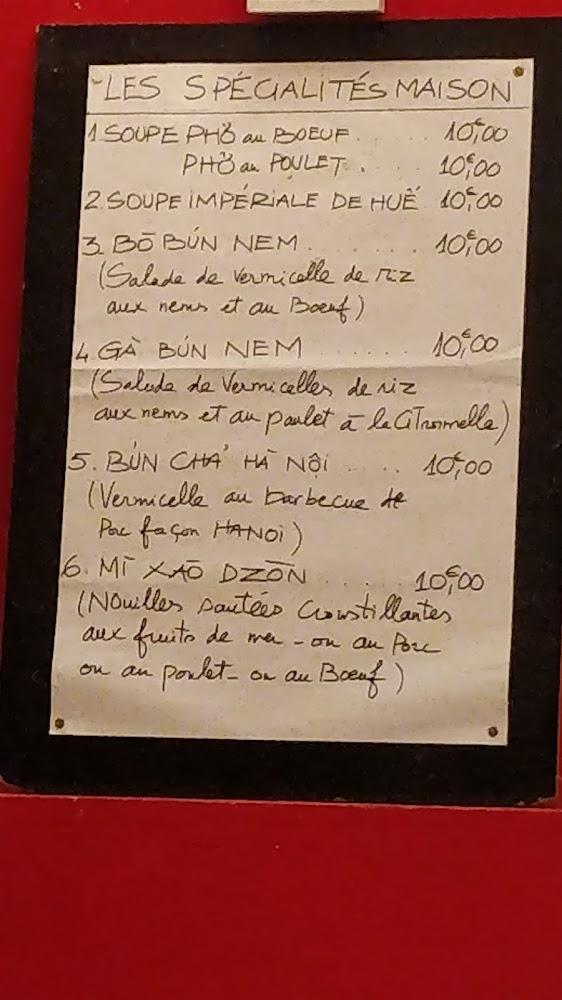 LES SPÉCIALITÉS MAISON
1 SOUPE PHỞ au BOEUF . . . . 10,€00
PHỞ au POULET . . . . 10,€00
2. SOUPE IMPÉRIALE DE HUẾ 10,€00
3. BÒ BÚN NEM . . . . . . 10,€00
(Salade de vermicelle de riz
aux nems et au Boeuf)
4. GÀ BÚN NEM . . . . . 10,€00
(Salade de Vermicelles de riz
aux nems et au poulet à la Citronnelle)
5. BÚN CHẢ HÀ NỘI . . . . 10,€00
(Vermicelle au barbecue de
Porc façon HANOI)
6. MÌ XÀO DZÒN . . . . . 10,€00
(Nouilles sautées Croustillantes
aux fruits de mer - ou au Porc
ou au poulet - ou au Boeuf)